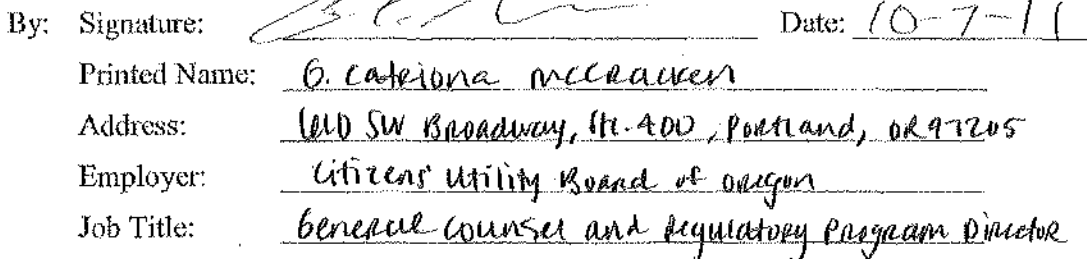 By: Signature: Date: 10-7-11
Printed Name: G. Catriona McCracken
Address: 610 SW Broadway, Ste. 400, Portland, OR 97205
Employer: Citizens' Utility Board of Oregon
Job Title: General Counsel and Regulatory Program Director